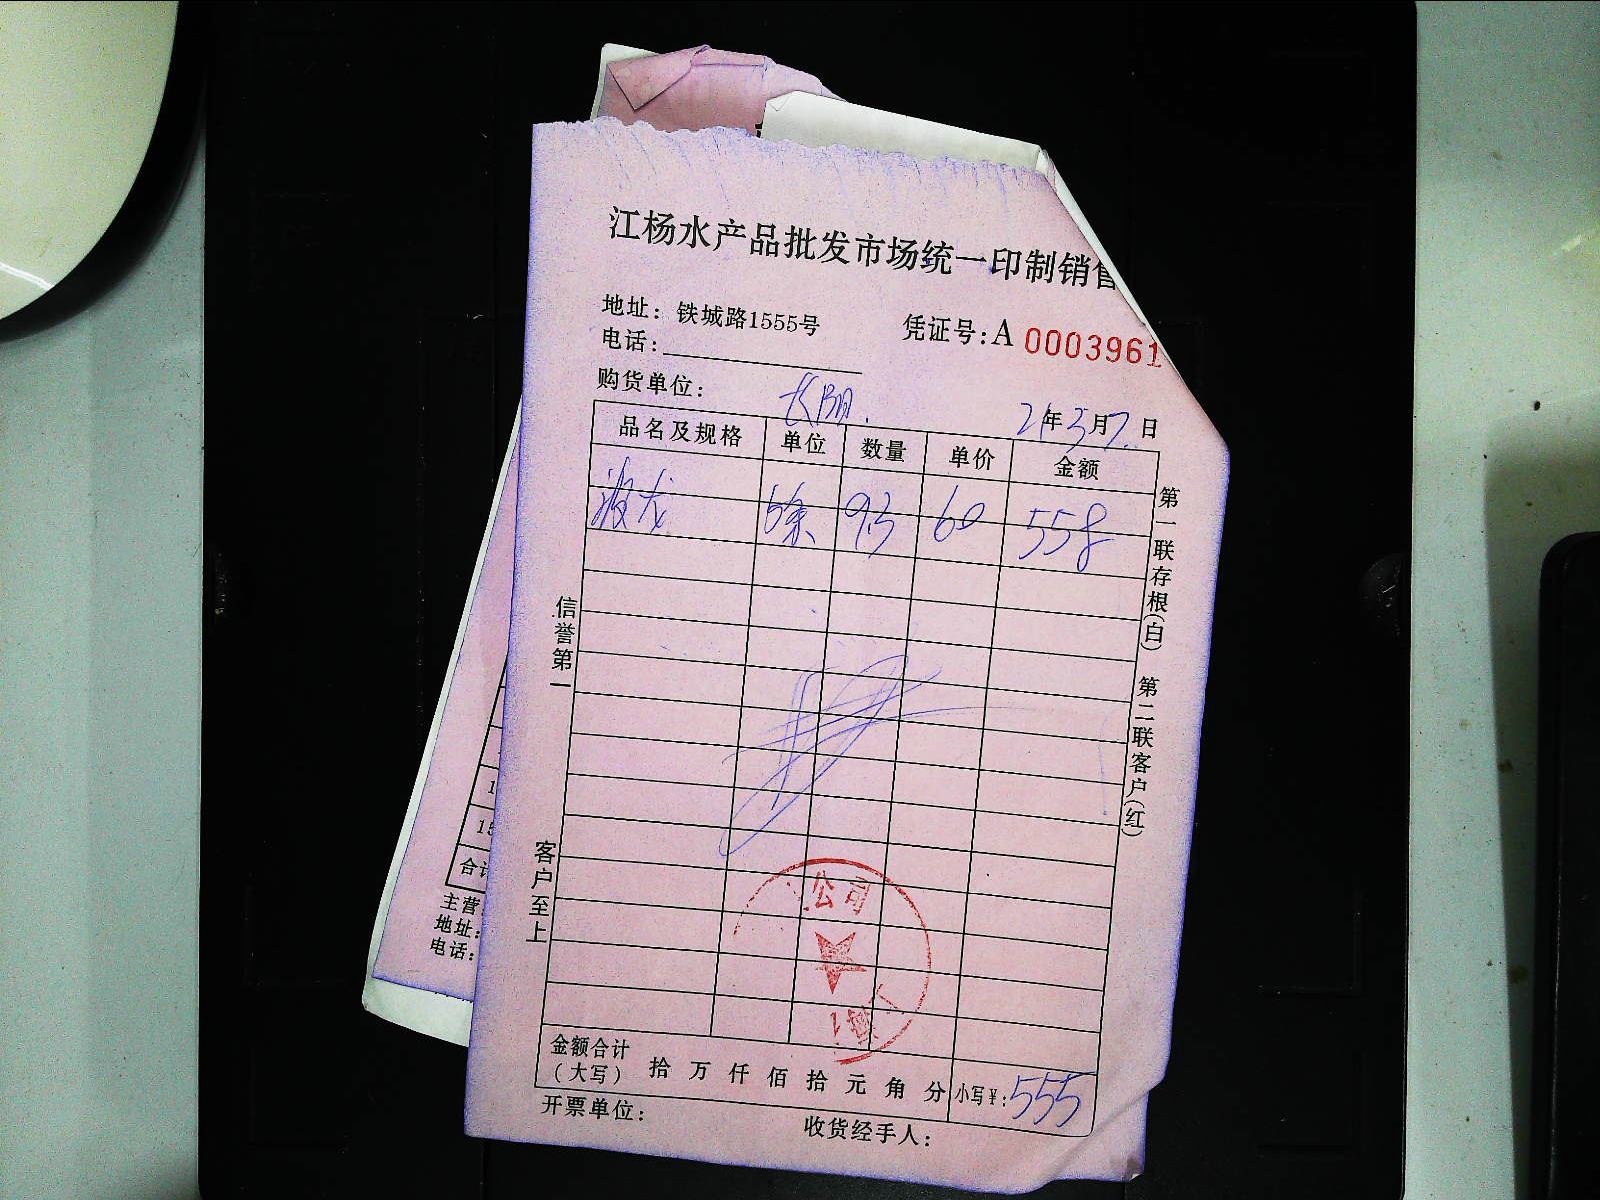 江杨水产品批发市场统一印制销售
地址：铁城路1555号
凭证号：A 0003961
电话：
购货单位：
21年3月7日
品名及规格 单位 数量 单价 金额
波龙 6条 93 60 558
第一联存根(白) 第二联客户(红)
信誉第一
客户至上
公司
金额合计（大写） 拾 万 仟 佰 拾 元 角 分 小写￥：555
开票单位：
收货经手人：
合计
主营
地址：
电话：